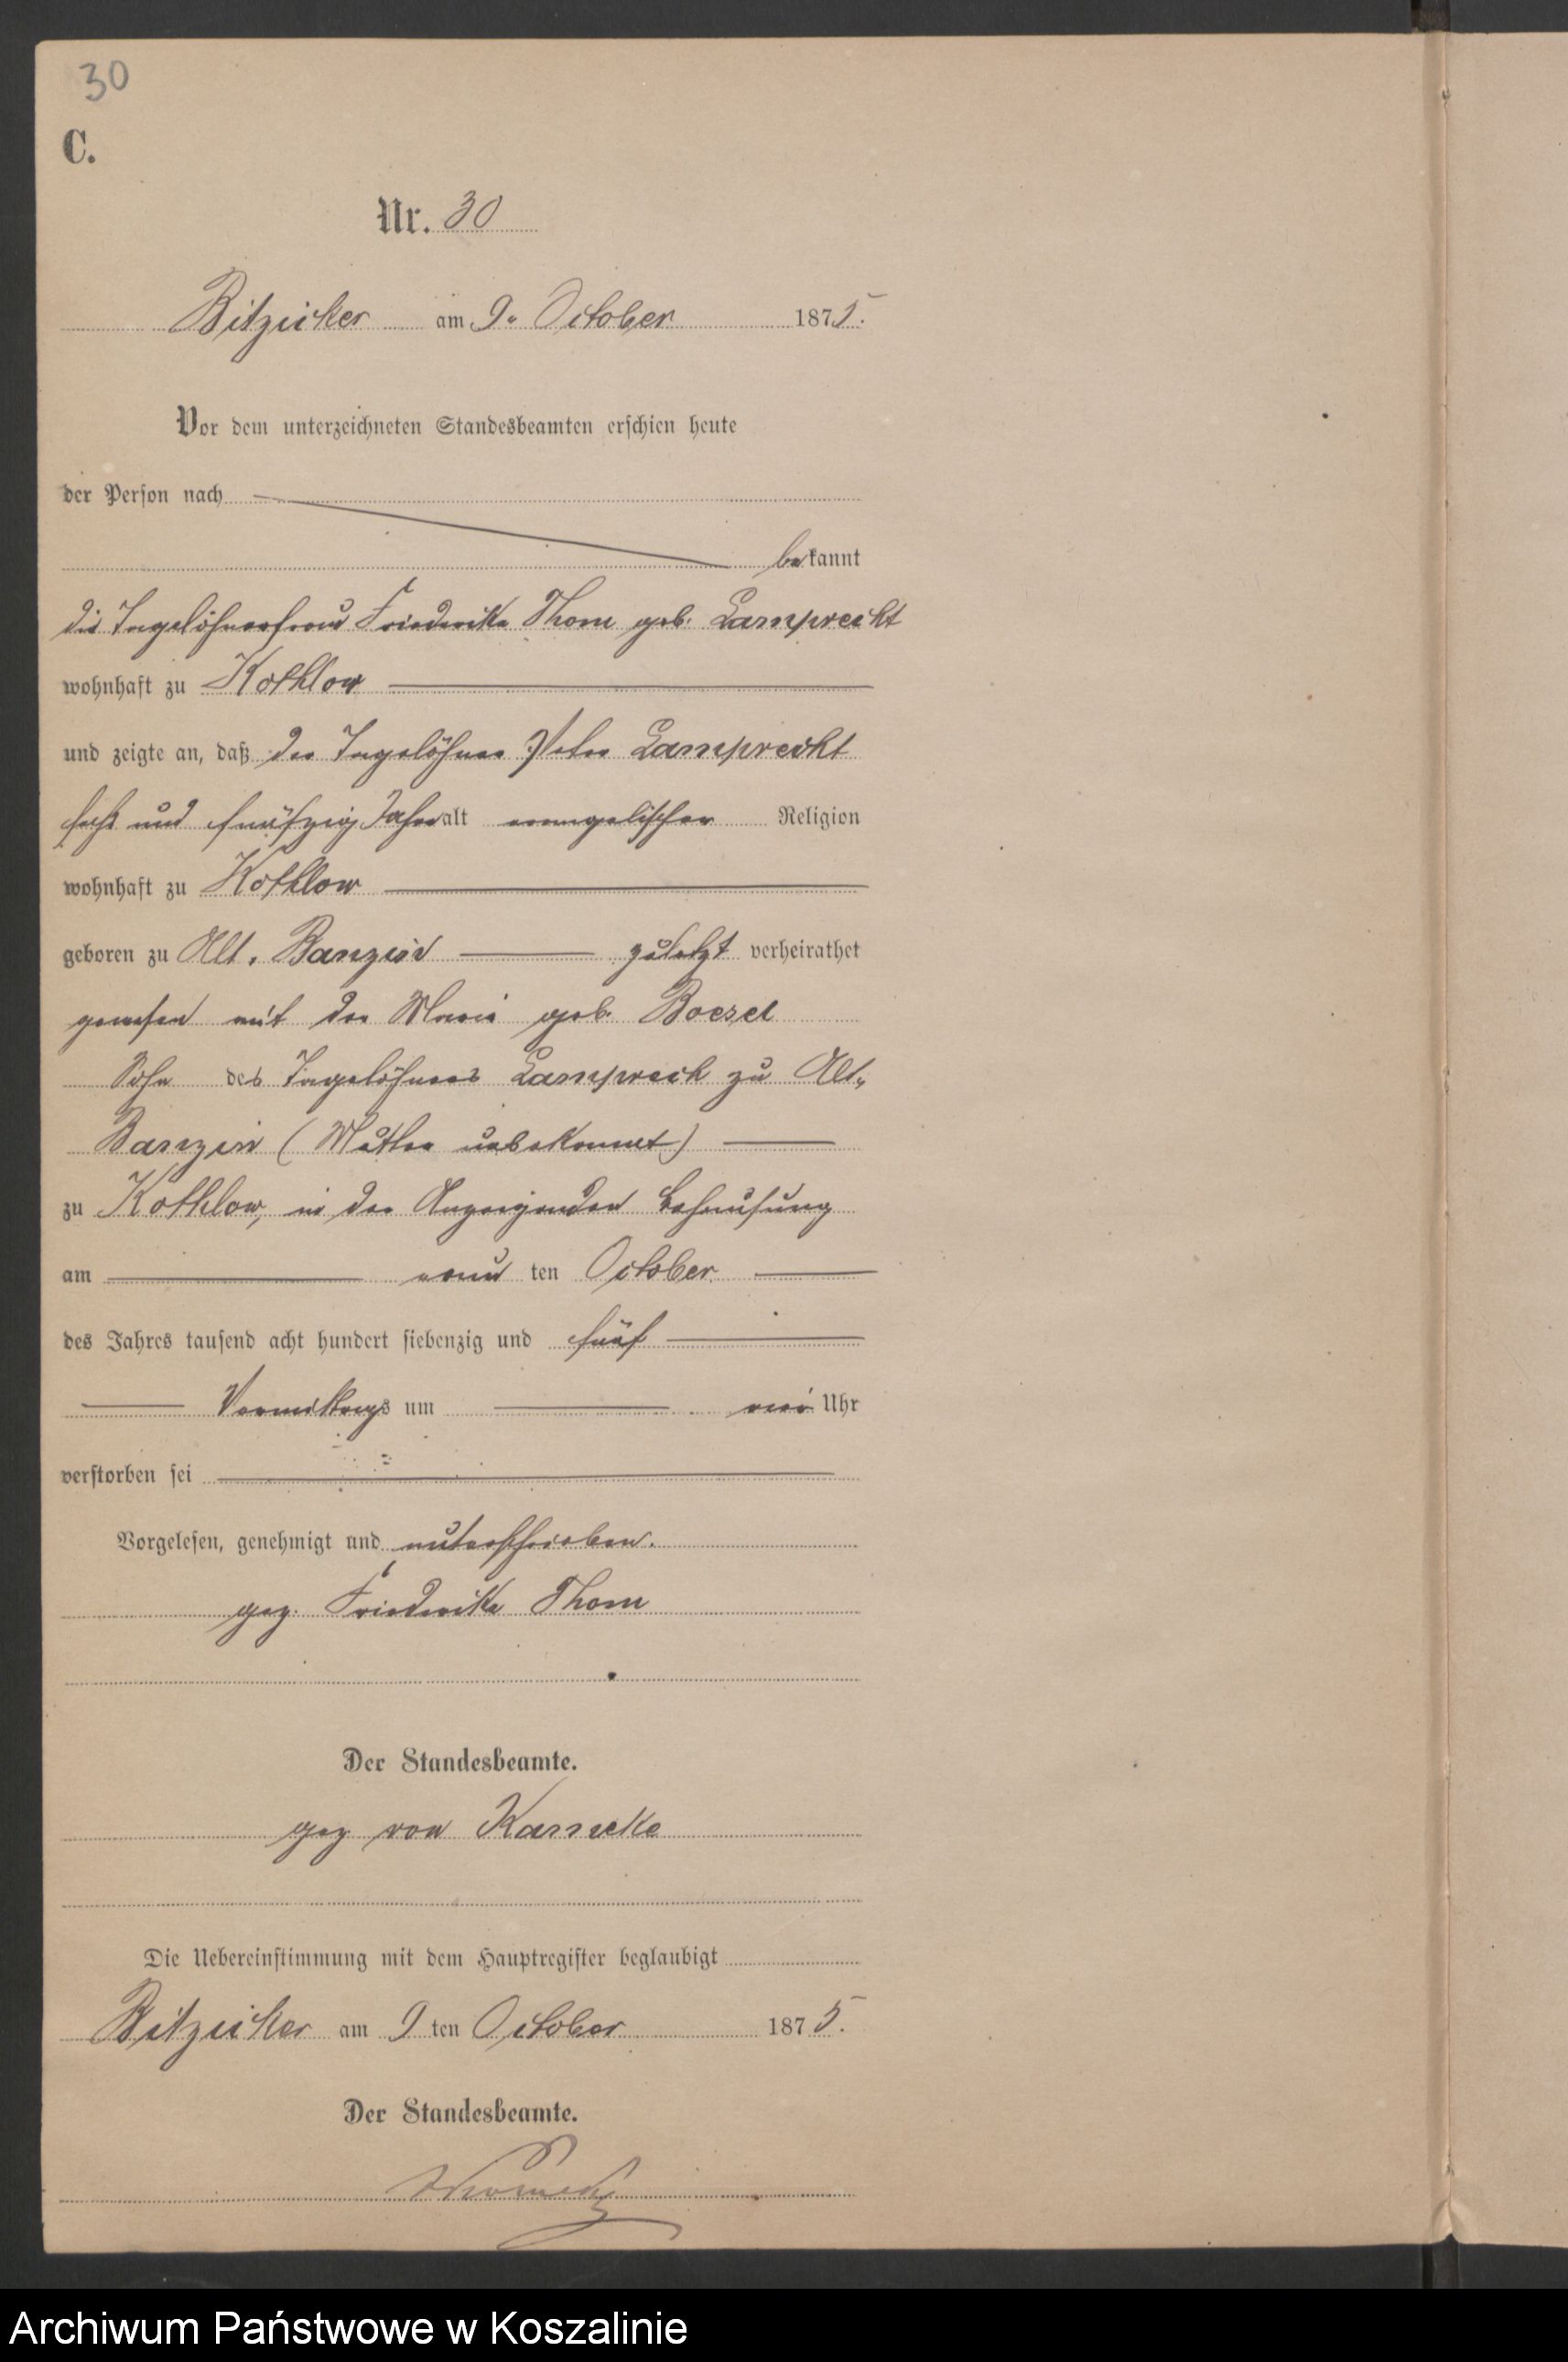 30
C.
Nr. 30
Bitzicker am 9. October 1875.
Vor dem unterzeichneten Standesbeamten erschien heute
der Person nach
bekannt
die Tagelöhnerfrau Friederike Thom geb. Lamprecht
wohnhaft zu Kothlow
und zeigte an, daß der Tagelöhner Peter Lamprecht
sechs und fünfzig Jahre alt evangelischer Religion
wohnhaft zu Kothlow
geboren zu Alt. Banzin zuletzt verheirathet
gewesen mit der Marie geb. Boesel
Sohn des Tagelöhners Lamprech zu Alt„
Banzin (Mutter unbekannt)
zu Kothlow, in der Anzeigenden Behausung
am neun ten October
des Jahres tausend acht hundert siebenzig und fünf
Vormittags um vier Uhr
verstorben sei
Vorgelesen, genehmigt und unterschrieben.
gez. Friederike Thom
Der Standesbeamte.
gez von Kameke
Die Uebereinstimmung mit dem Hauptregister beglaubigt
Bitzicker am 9 ten October 1875.
Der Standesbeamte.
Archiwum Państwowe w Koszalinie